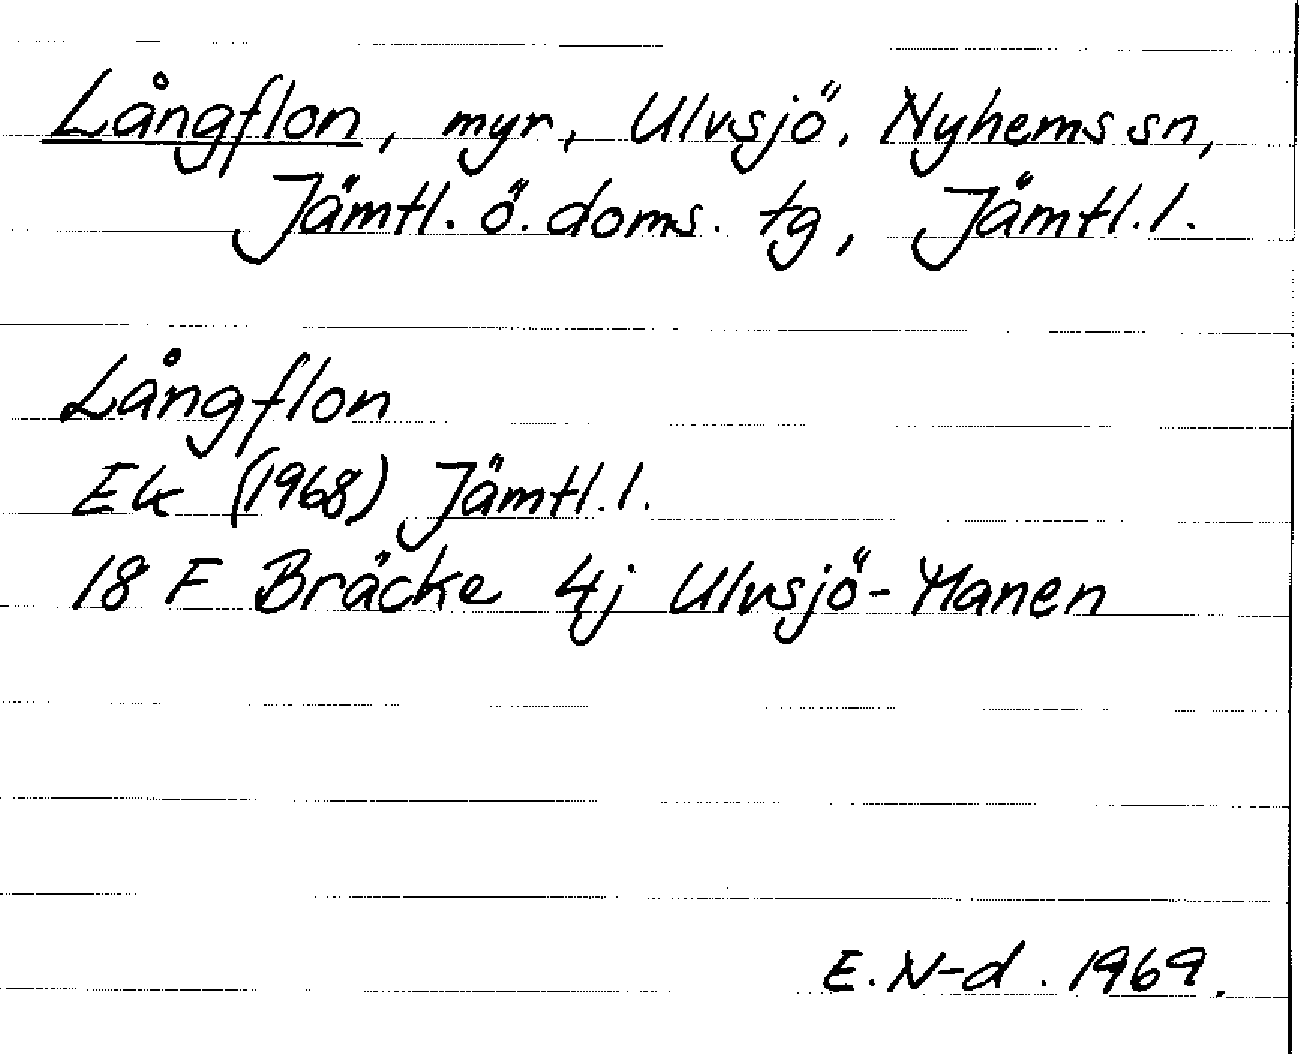 Långflon, myr, Ulvsjö, Nyhems sn,
Jämtl. ö. doms. tg, Jämtl. l.
Långflon
Ek (1968) Jämtl. l.
18 F Bräcke 4j Ulvsjö-Manen
E. N-d. 1969.